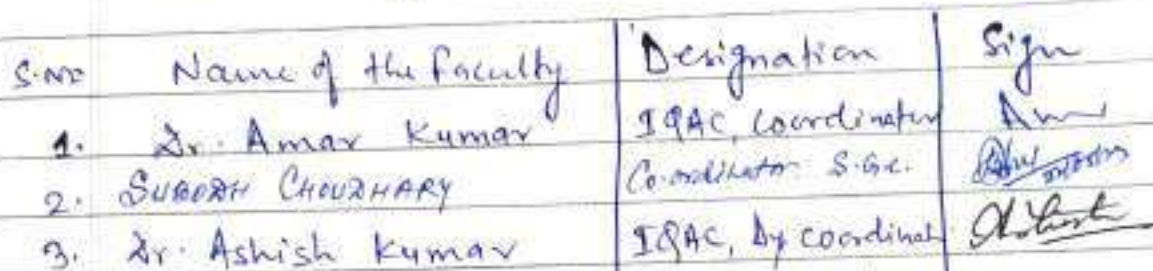 S.No Name of the Faculty Designation Sign
1. Dr. Amar Kumar IQAC, Coordinator
2. SUBODH CHOUDHARY Co-ordinator S.G.C.
3. Dr. Ashish Kumar IQAC, Dy coordinat